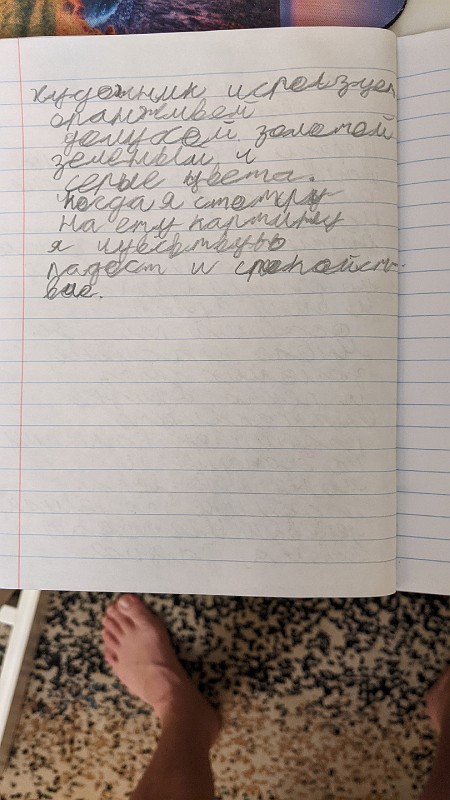 художник использует
оранживей
голубой золотой
зеленый и
серые цвета.
Когда я сматрю
на ету картину
я чувствую
радост и спокойст-
вие.